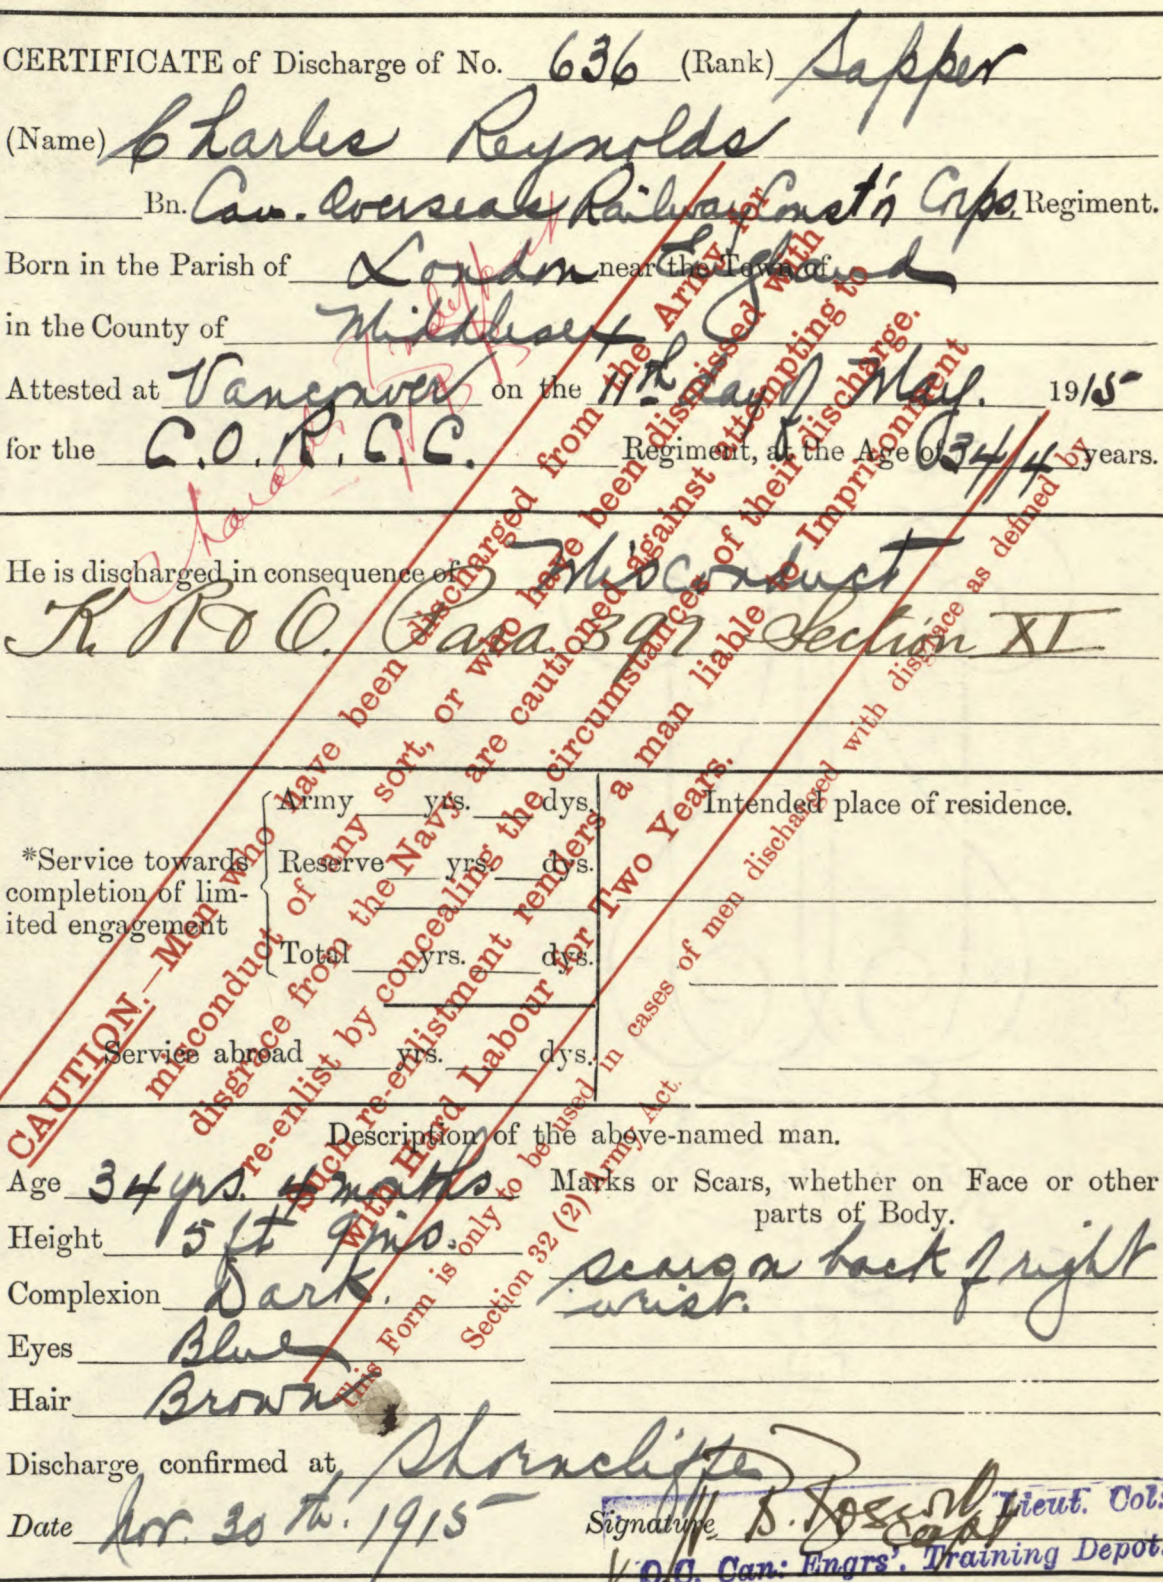 CERTIFICATE of Discharge of No. 636 (Rank) Sapper
(Name) Charles Reynolds
Bn. Can. Overseas Railway Const'n Corps. Regiment.
Born in the Parish of London near the Town of England
in the County of Middlesex
Attested at Vancouver on the 11th day of May. 1915
for the C.O.R.C.C. Regiment, at the Age of 34/4 years.
He is discharged in consequence of Misconduct
K. R & O. Para 392 Section XI
*Service towards completion of limited engagement
Army yrs. dys.
Reserve yrs. dys.
Total yrs. dys.
Service abroad yrs. dys.
Intended place of residence.
Description of the above-named man.
Age 34 yrs. 4 months
Height 5 ft 9 ins.
Complexion Dark.
Eyes Blue
Hair Brown
Marks or Scars, whether on Face or other
parts of Body.
scars on back of right
wrist.
Discharge confirmed at Shorncliffe
Date Nov. 30th. 1915
Signature B. Capt Lieut. Col:
O.C. Can: Engrs'. Training Depot.
CAUTION.—Men who have been discharged from the Army for
misconduct of any sort, or who have been dismissed with
disgrace from the Navy are cautioned against attempting to
re-enlist by concealing the circumstances of their discharge.
Such re-enlistment renders a man liable to Imprisonment
with Hard Labour for Two Years.
This Form is only to be used in cases of men discharged with disgrace as defined by
Section 32 (2) Army Act.
Character